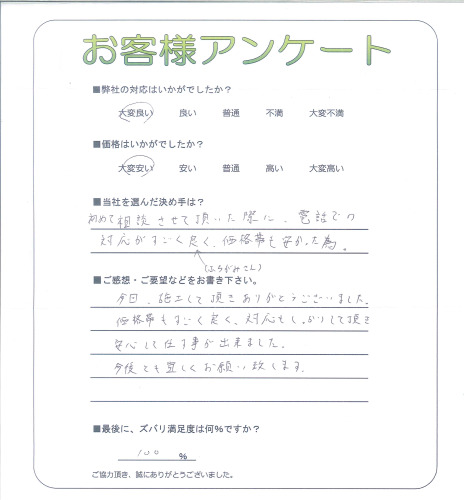 お客様アンケート
■弊社の対応はいかがでしたか？
大変良い 良い 普通 不満 大変不満
■価格はいかがでしたか？
大変安い 安い 普通 高い 大変高い
■当社を選んだ決め手は？
初めて相談させて頂いた際に、電話での
対応がすごく良く、価格帯も安かった為。
(ふちがみさん)
■ご感想・ご要望などをお書き下さい。
今日、施工して頂きありがとうございました。
価格帯もすごく良く、対応もしっかりして頂き
安心して任す事が出来ました。
今後とも宜しくお願い致します。
■最後に、ズバリ満足度は何%ですか？
100 %
ご協力頂き、誠にありがとうございました。